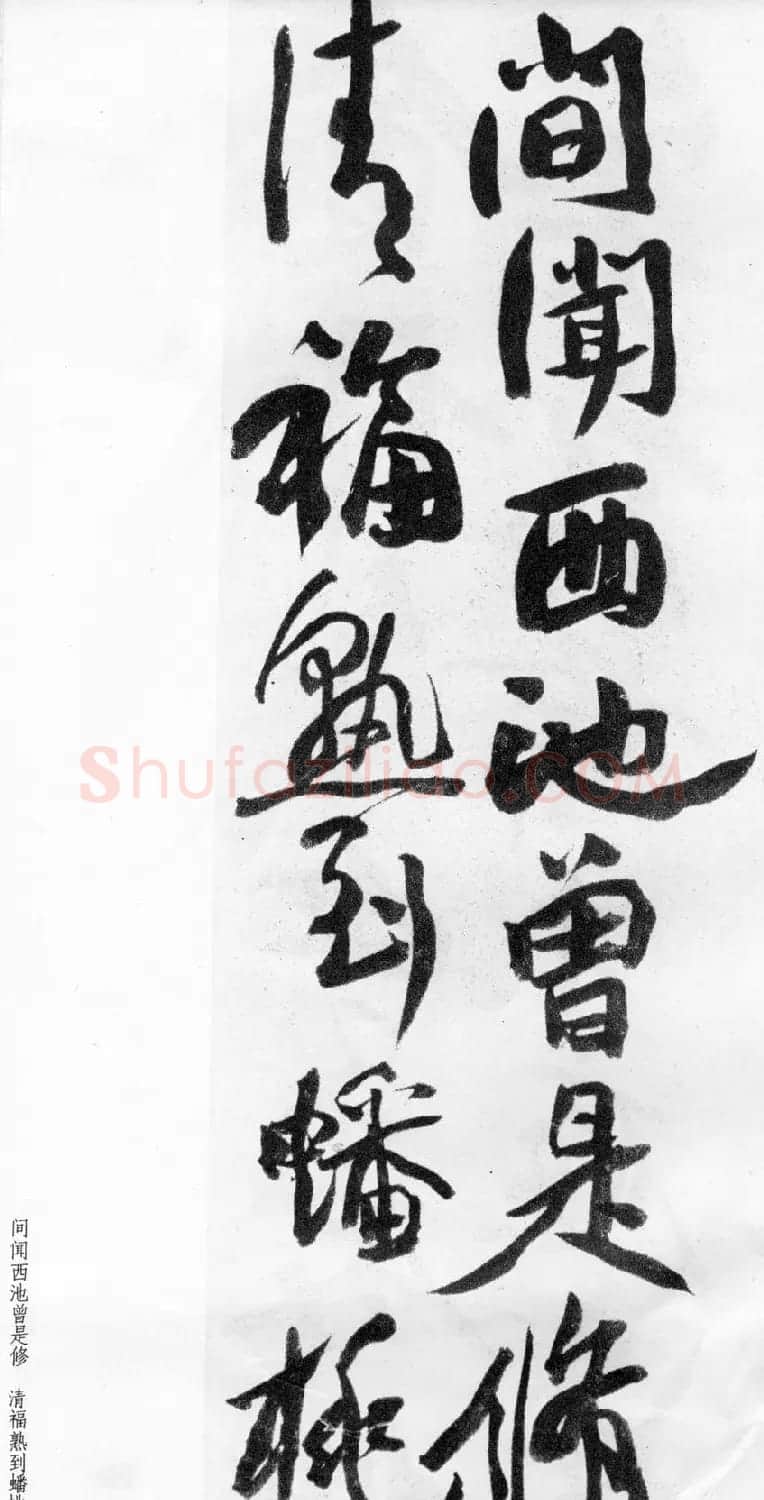 間聞西池曾是修
清福熟到蟠桃
问闻西池曾是修 清福熟到蟠桃
Shufaziliao.COM